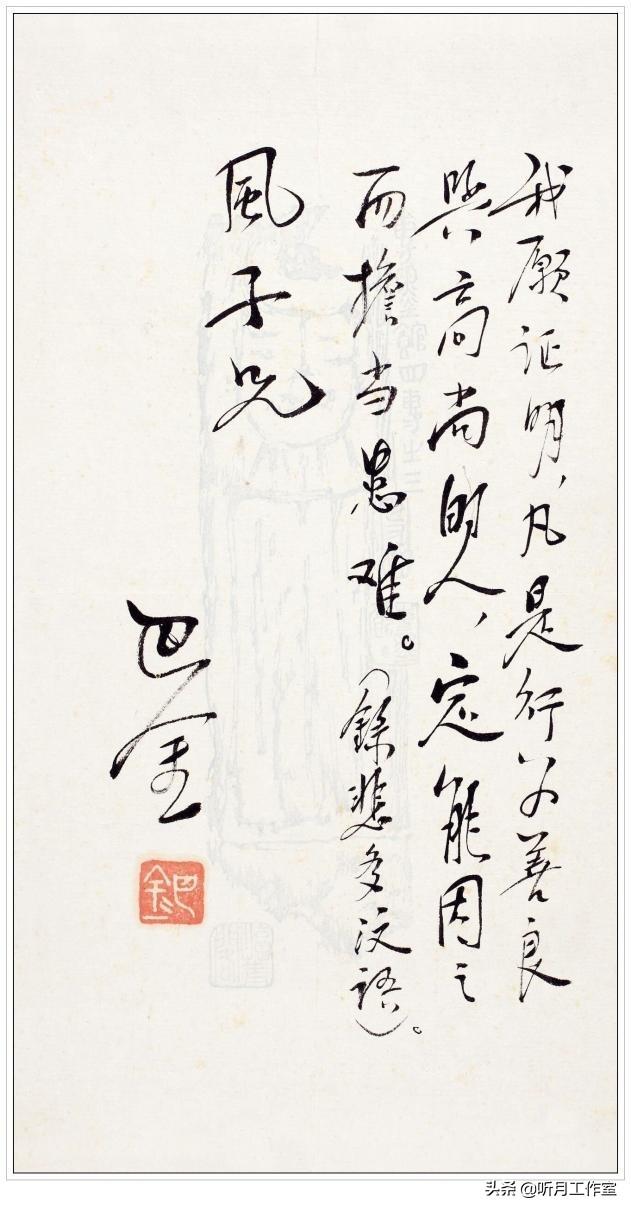 我愿证明，凡是行为善良
與高尚的人，定能因之
而擔当患难。（錄悲多汶語）。
風子兄
巴金
巴金
头条 @听月工作室